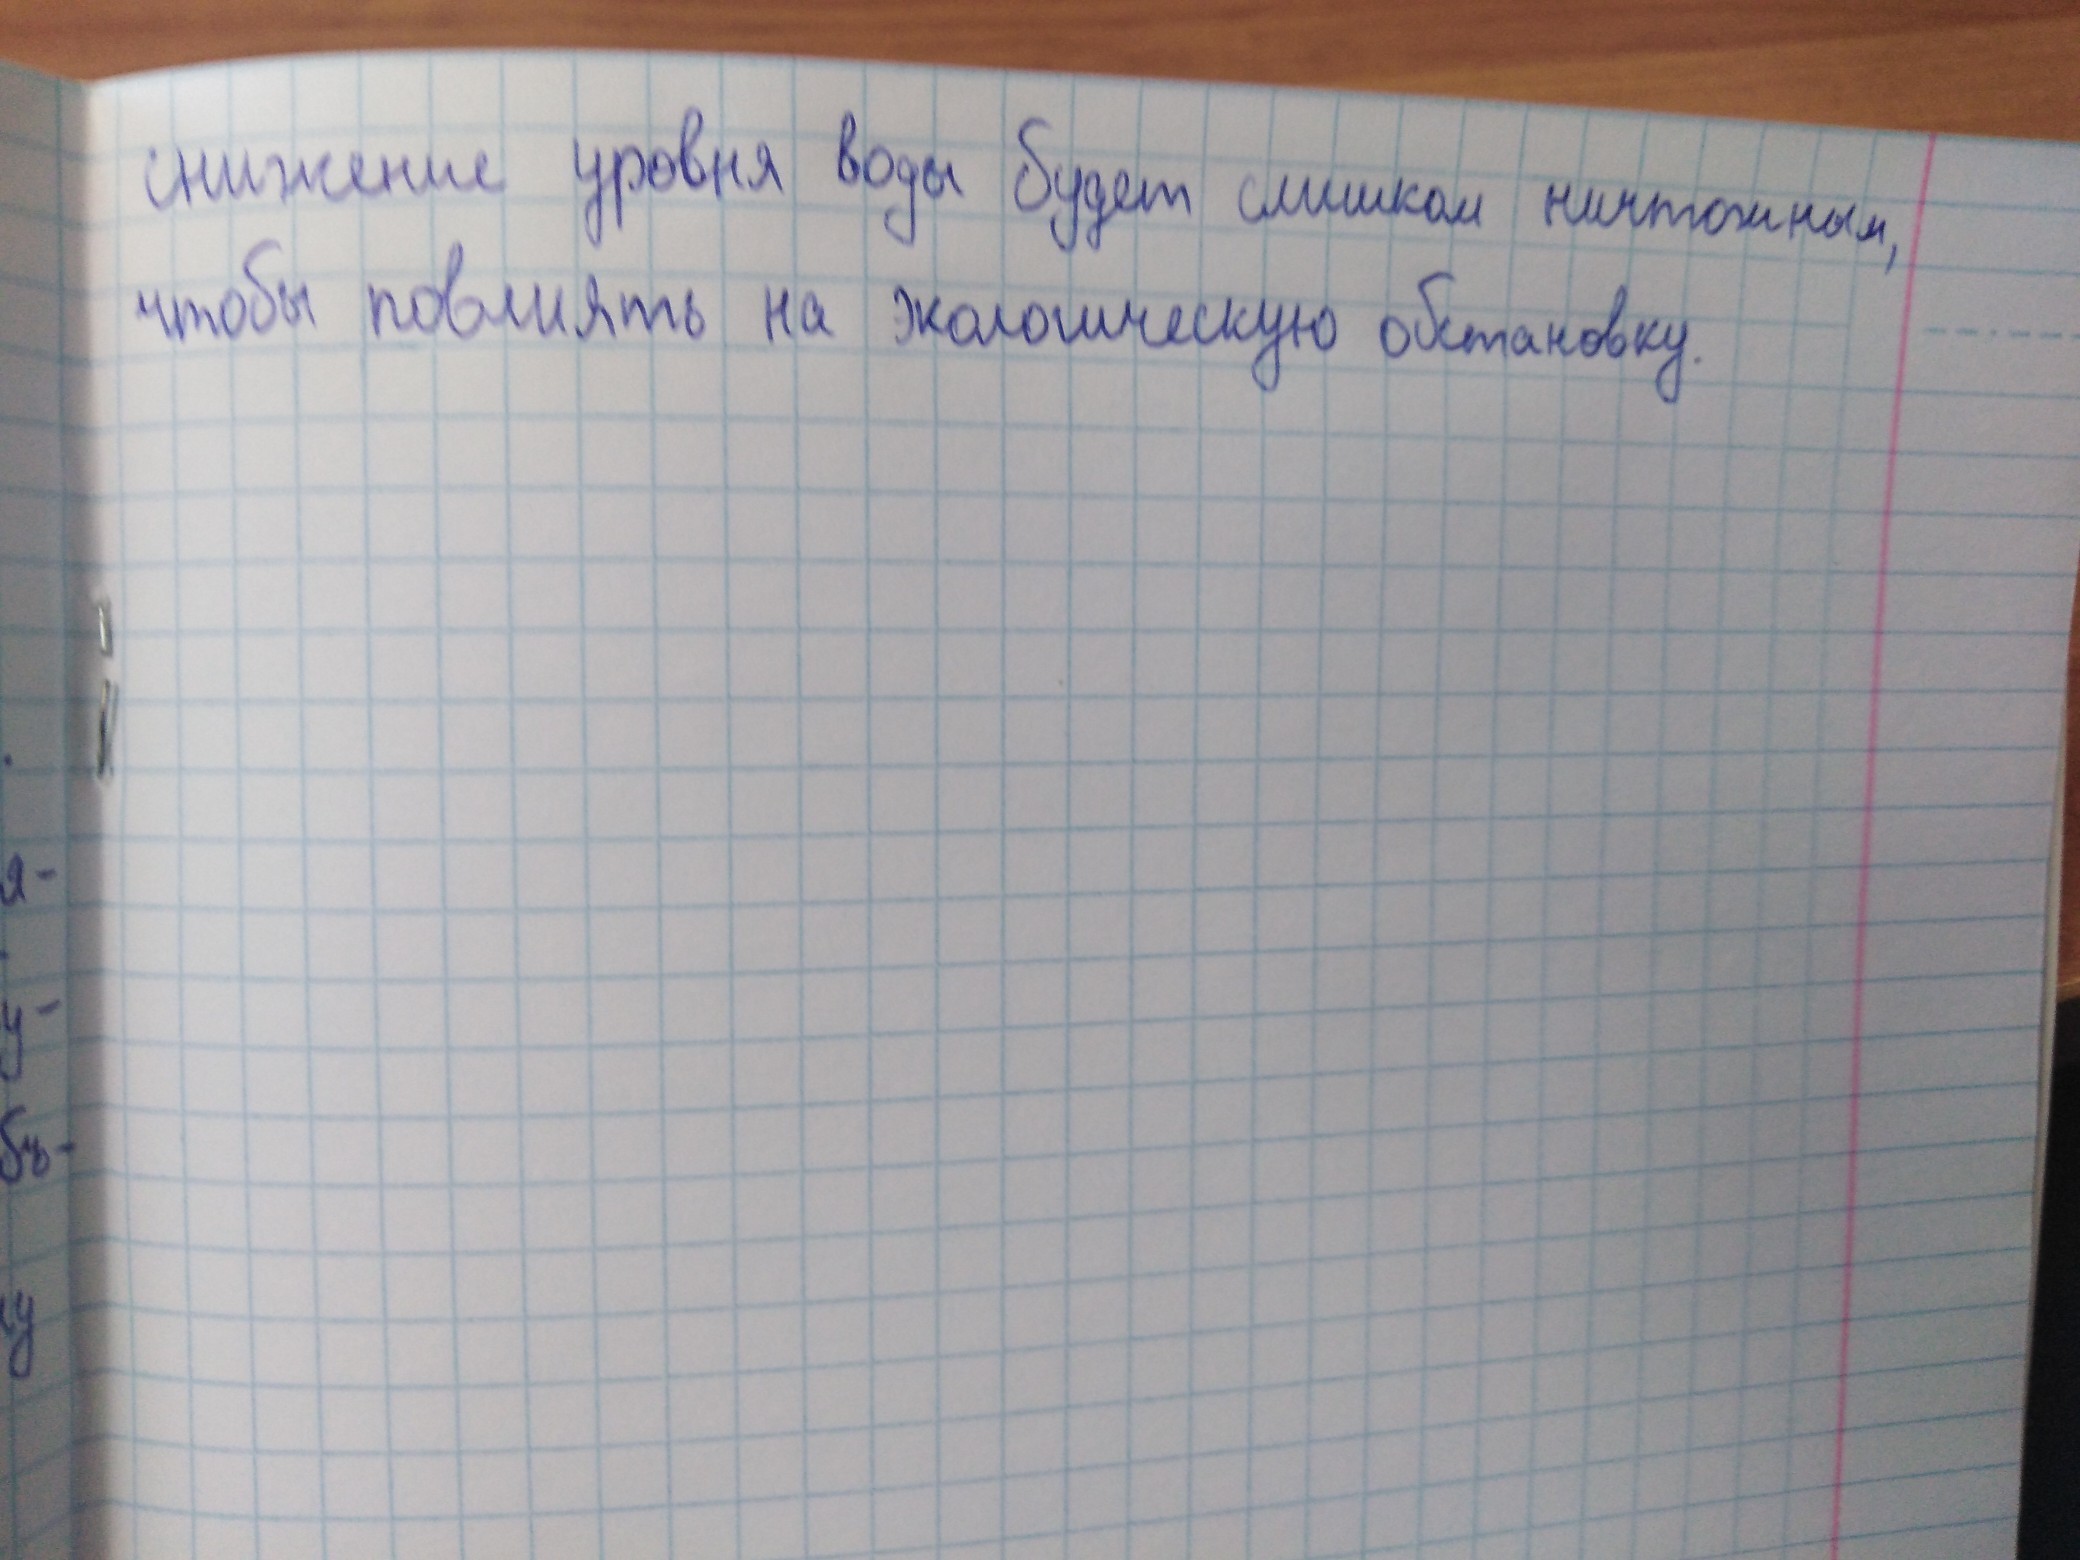 снижение уровня воды будет слишком ничтожным,
чтобы повлиять на экологическую обстановку.
я-
у-
бъ-
у